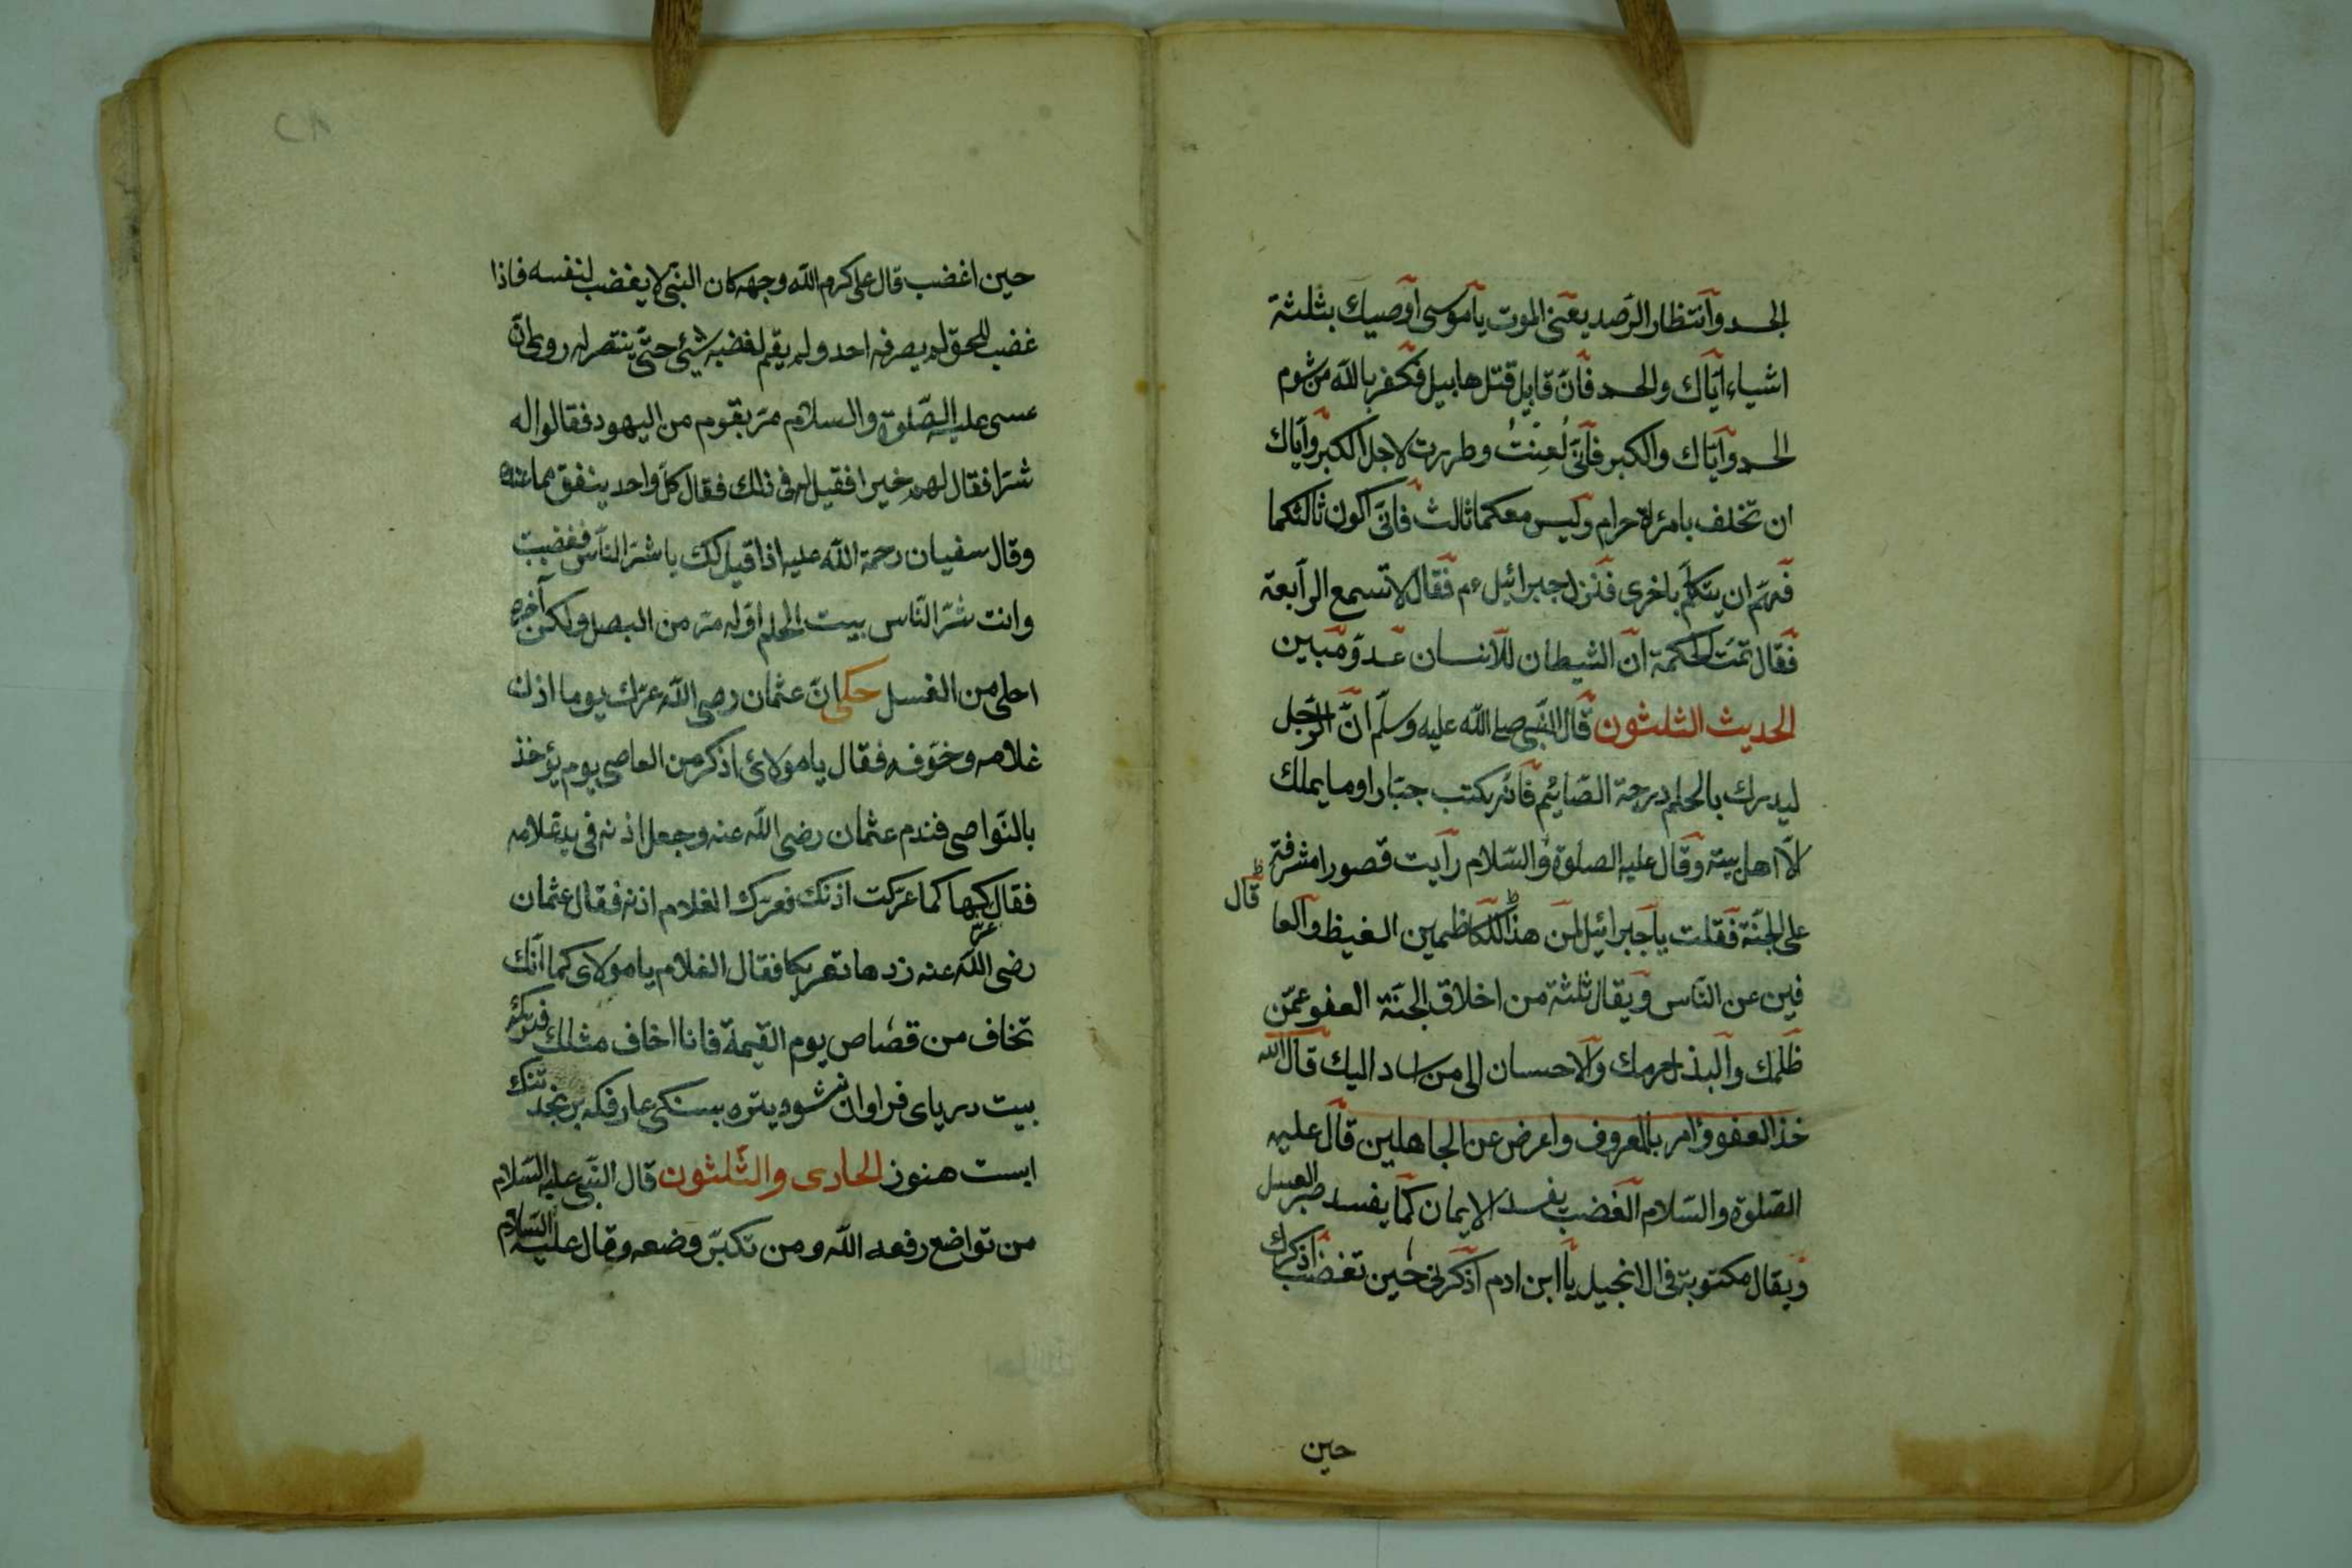 الجسد وانتظار الرصد يعنى الموت يا موسى اوصيك بثلثة
اشياء اياك والحسد فانّ قابيل قتل هابيل فكفر بالله من شوم
الحسد وايّاك والكبر فانّى لُعِنْتُ وطردت لاجل الكبر وايّاك
ان تخلف بامرئة حرام وليس معكما ثالث فانّى اكون ثالثكما
فهمّ ان يتكلّم باخرى فنزل جبرائيل عم فقال لا تسمع الرّابعة
فقال تمّت الحكمة انّ الشيطان للانسان عدوّ مبين
الحديث الثلثون قال النّبى صلى اللّه عليه وسلّم انّ الرّجل
ليدرك بالحلم درجة الصّائم فانّه يكتب جبّارا وما يملك
الّا اهل بيته وقال عليه الصلوة والسّلام رايت قصورا مشرفة
على الجنّة فقلت يا جبرائيل لمن هذا للكاظمين الغيظ والعا
قال
فين عن النّاس ويقال ثلثة من اخلاق الجنّة العفو عمّن
ظلمك والبذل لحرمك والاحسان الى من اساد اليك قال اللّه
خذ العفو وامر بالمعروف واعرض عن الجاهلين قال عليه
الصّلوة والسّلام الغضب يفسد الايمان كما يفسد صبر العسل
ويقال مكتوبة فى الانجيل يا ابن ادم اذكرنى حين تغضب اذكرك
حين
حين اغضب قال على كرم اللّه وجهه كان النّبى لا يغضب لنفسه فاذا
غضب للحق لم يصرفه احد ولم يقم لغضبه شيئ حتّى ينتصر له روى انّ
عسى عليه الصّلوة والسلام مرّ بقوم من اليهود فقالوا له
شرّا فقال لهم خيرا فقيل له فى ذلك فقال كلّ واحد ينفق مما عنده
وقال سفيان رحمة اللّه عليه اذا قيل لك يا شرّ النّاس فغضبت
وانت شرّ النّاس بيت الحلم اوّله مرّ من البصل ولكن آخره
احلى من العسل حكى انّ عثمان رضى اللّه عرّك يوما اذن
غلامه وخوّفه فقال يا مولائ اذكر من العاصى يوم يؤخذ
بالنّواصى فندم عثمان رضى اللّه عنه وجعل اذنه فى يد غلامه
فقال كبها كما عرّكت اذنك فعرّك الغلام اذنه فقال عثمان
عرّ
رضى اللّه عنه زدها تعريكا فقال الغلام يا مولاى كما انّك
تخاف من قصاص يوم القيمة فانا اخاف مثلك فتركه
بيت درياى فراوان نشود يتره بسنكى عارف كه برنجد تنك
ابست هنوز الحادى والثّلثون قال النّبى عليه السّلام
من تواضع رفعه اللّه ومن تكبّر وضعه وقال عليه السّلام